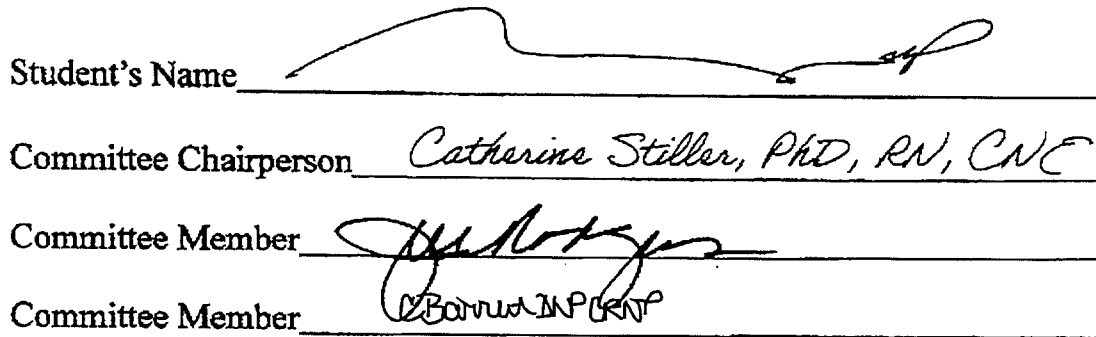 Student's Name
Committee Chairperson Catherine Stiller, PhD, RN, CNE
Committee Member
Committee Member DNP CRNP